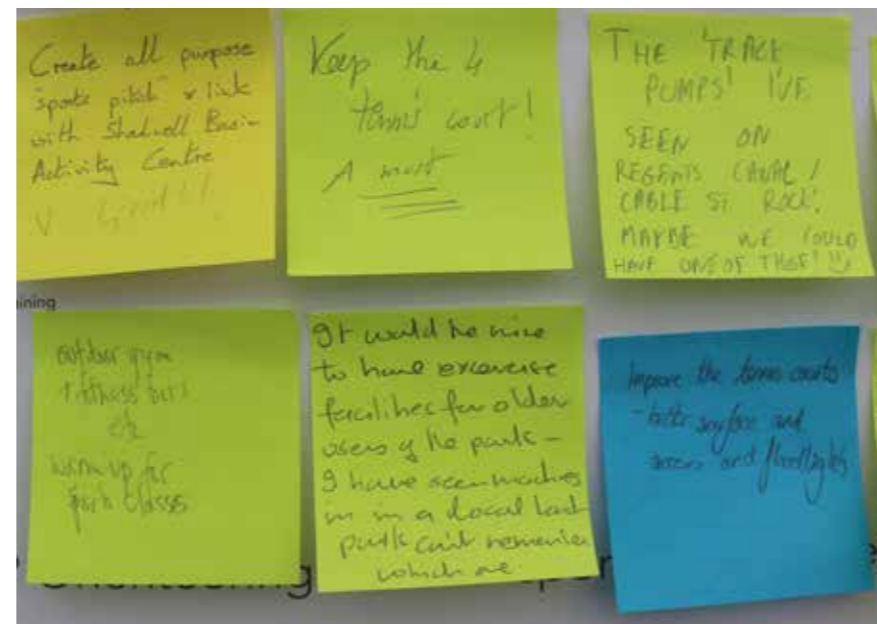 Create all purpose
"sports pitch" & link
with Shadwell Basin
Activity Centre
V
Keep the 4
tennis court!
A must
THE 'TRACK
PUMPS' I'VE
SEEN ON
REGENTS CANAL /
CABLE ST ROCK!
MAYBE WE COULD
HAVE ONE OF THOSE!
ining
outdoor gym
etc
warm up for
park classes
It would be nice
to have excercise
facilities for older
users of the park -
I have seen machines
in in a local
park can't remember
which one
Improve the tennis courts
- better surface and
access and floodlights
Orienteering